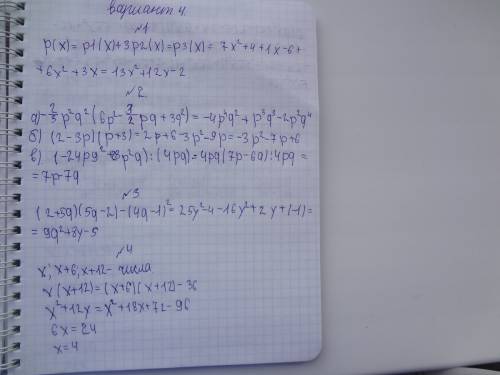 вариант 4.
№1
p(x)=p1(x)+3p2(x)=p3(x)= 7x²+4+1x-6+
+6x²+3x=13x²+12x-2
№2
а)-2/3p²q²(6p²-3/2pq+3q²)=-4p⁴q²+p³q³-2p²q⁴
б) (2-3p)(p+3)=2p+6-3p²-9p=-3p²-7p+6
в) (-24pq²+28p²q):(4pq)=4pq(7p-6q):4pq=
=7p-7q
№3
(2+5q)(5q-2)-(4q-1)²=25y²-4-16y²+2y+(-1)=
=9q²+8y-5
№4
x; x+6; x+12- числа
x(x+12)=(x+6)(x+12)-36
x²+12x=x²+18x+72-96
6x=24
x=4